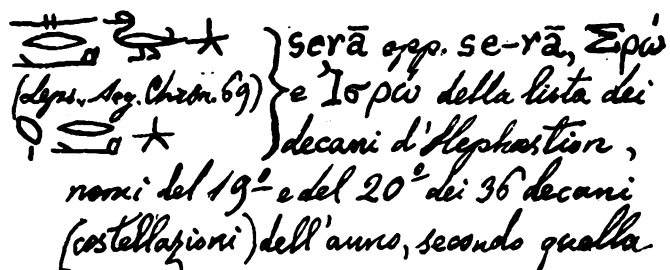 serā opp. se-rā, Σρώ
(Leps., Aeg. Chron. 69) e Ἰσρώ della lista dei
decani d'Hephæstion,
nomi del 19º e del 20º dei 36 decani
(costellazioni) dell'anno, secondo quella